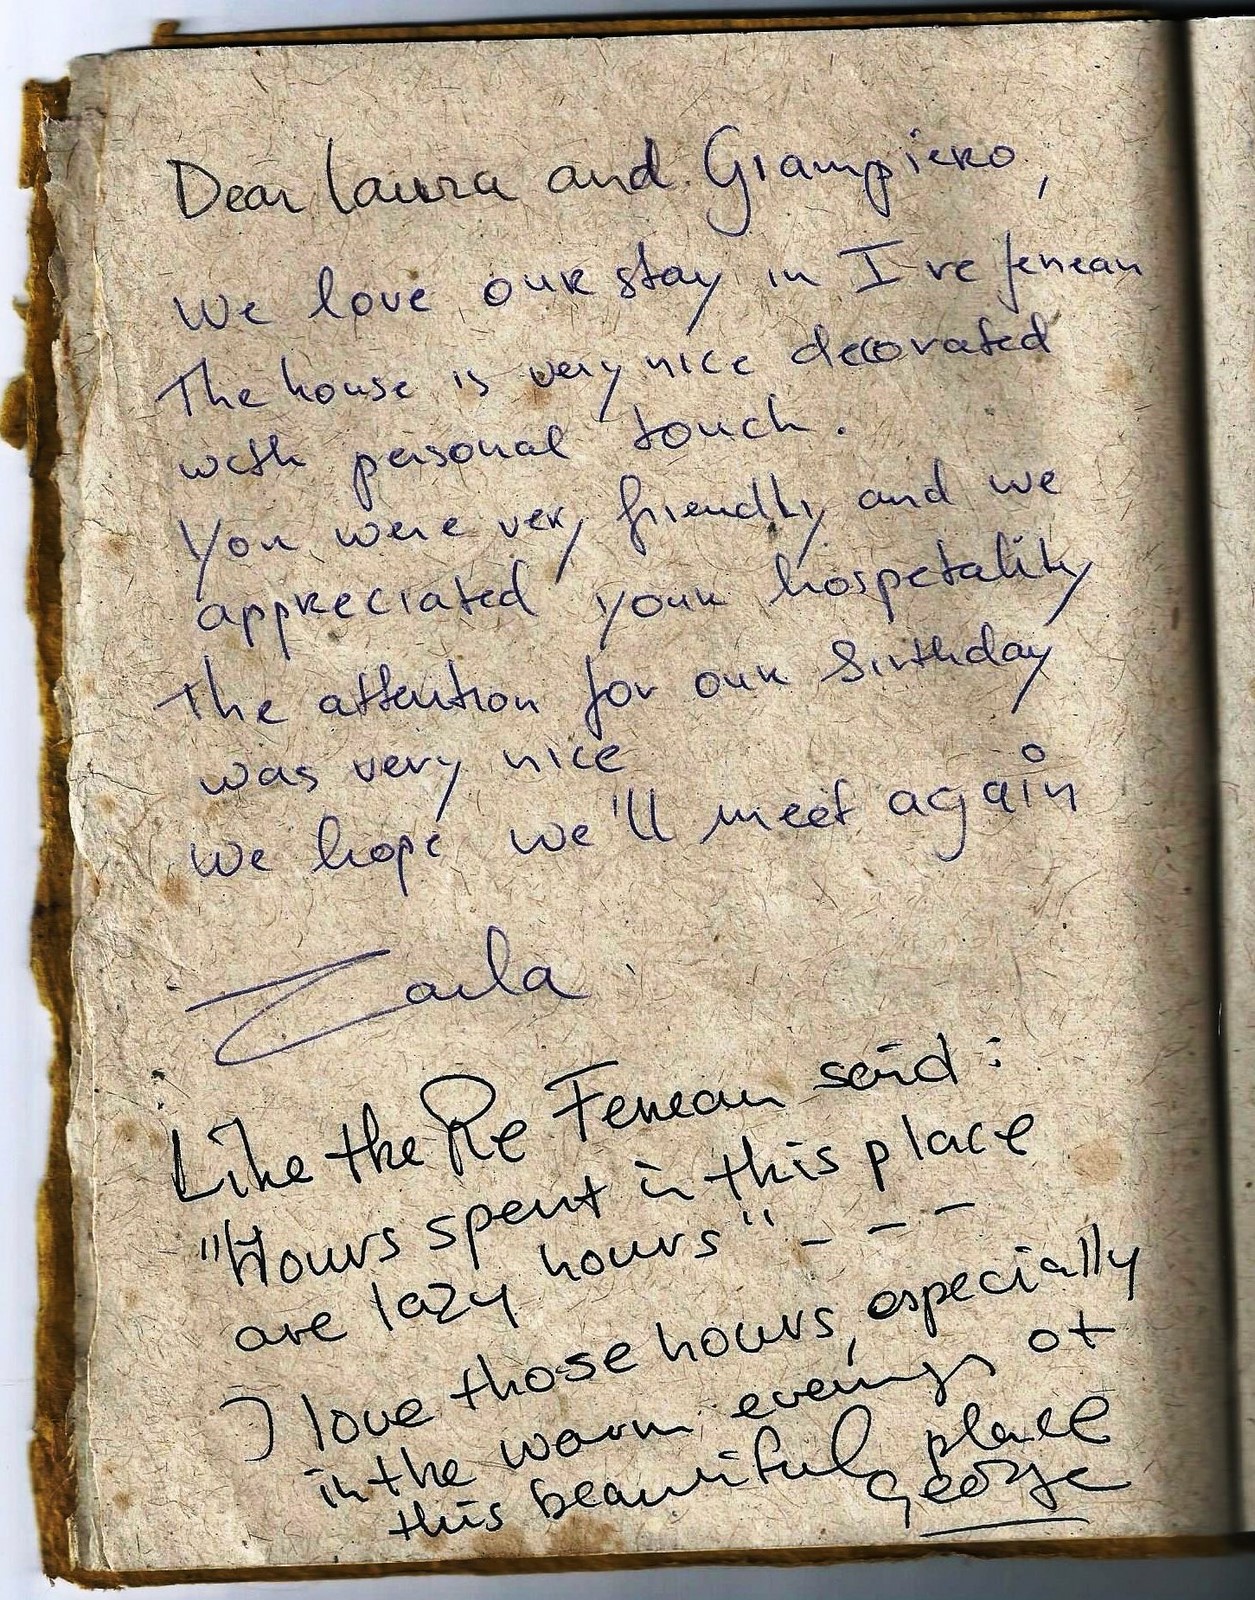 Dear Laura and Giampiero,
We love our stay in I re fenean
The house is very nice decorated
with personal touch.
You were very friendly and we
appreciated your hospetality
The attention for our Birthday
was very nice
We hope we'll meet again
Carla
Like the Re Fenean said:
"Hours spent in this place
are lazy hours" - - -
I love those hours, especially
in the warm evenings at
this beautiful place
George